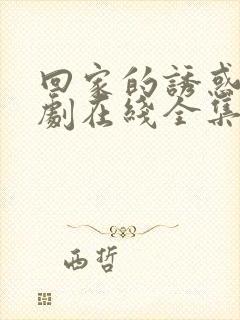 回家的誘惑
劇在綫全集
西哲